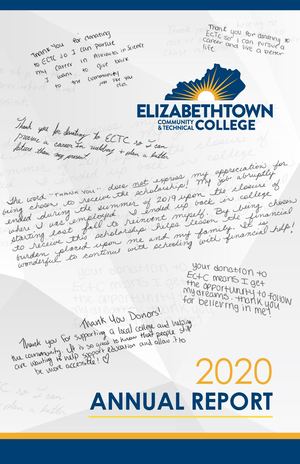 Thank You for donating
to ECTC so I can pursue
my career in
I want to give back
to the community
Thank you for donating to
ECTC so I can pursue a
career and live a better
life.
ELIZABETHTOWN
COMMUNITY
& TECHNICAL
COLLEGE
Thank you for donating to ECTC so I can
pursue a career in welding + plan a better
future than my present.
The word "THANK YOU" does not express my appreciation for
being chosen to receive the scholarship! My job abruptly
ended during the summer of 2019 upon the closure of
where I was employed. I ended up back in college
starting last fall to reinvent myself. By being chosen
to receive this scholarship helps lessen the financial
burden placed upon me and my family. It is
wonderful to continue with schooling with financial help!
your donation to
ECTC means I get
the opportunity to follow
my dreams. Thank you
for believing in me!
Thank You Donors!
Thank you for supporting a local college and helping
the community. It is so nice to know that people
are wanting to help support education and allow it to
be more accessible!
2020
ANNUAL REPORT